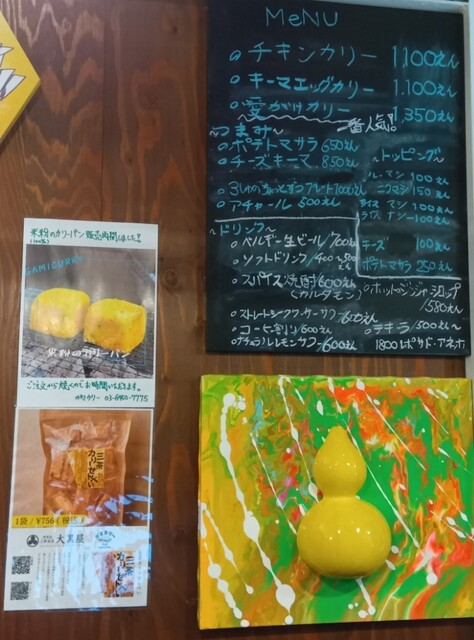 MENU
チキンカリー 1,100えん
キーマエッグカリー 1,100えん
愛がけカリー 1,350えん
一番人気!
~つまみ~
ポテトマサラ 650えん
チーズキーマ 850えん
3しゅのちょっとずつプレート 1000えん
アチャール 500えん
~トッピング~
ルーマシ 100えん
ニクマシ 150えん
ライスマシ 100えん
ライスナシ -100えん
チーズ 100えん
ポテトマサラ 250えん
~ドリンク~
ベルギー生ビール 700えん
ソフトドリンク 400~500えん
スパイス焼酎 600えん
(カルダモン)
ホットorジンジャーシロップ
580えん
ストレートシークワーサーサワー 600えん
コーヒー割リン 600えん
ナチュラルレモンサワー 600えん
テキラ 500えん~
1800レポサド・アネホ
米粉のカリーパン 販売再開しました!!
(100%)
SAMICURRY
米粉のカリーパン
ご注文から焼くのでお時間いただきます。
03-6450-7775
三茶
カリーせんべい
1袋/¥756(税込)
大黒屋
三茶
カリーせんべい